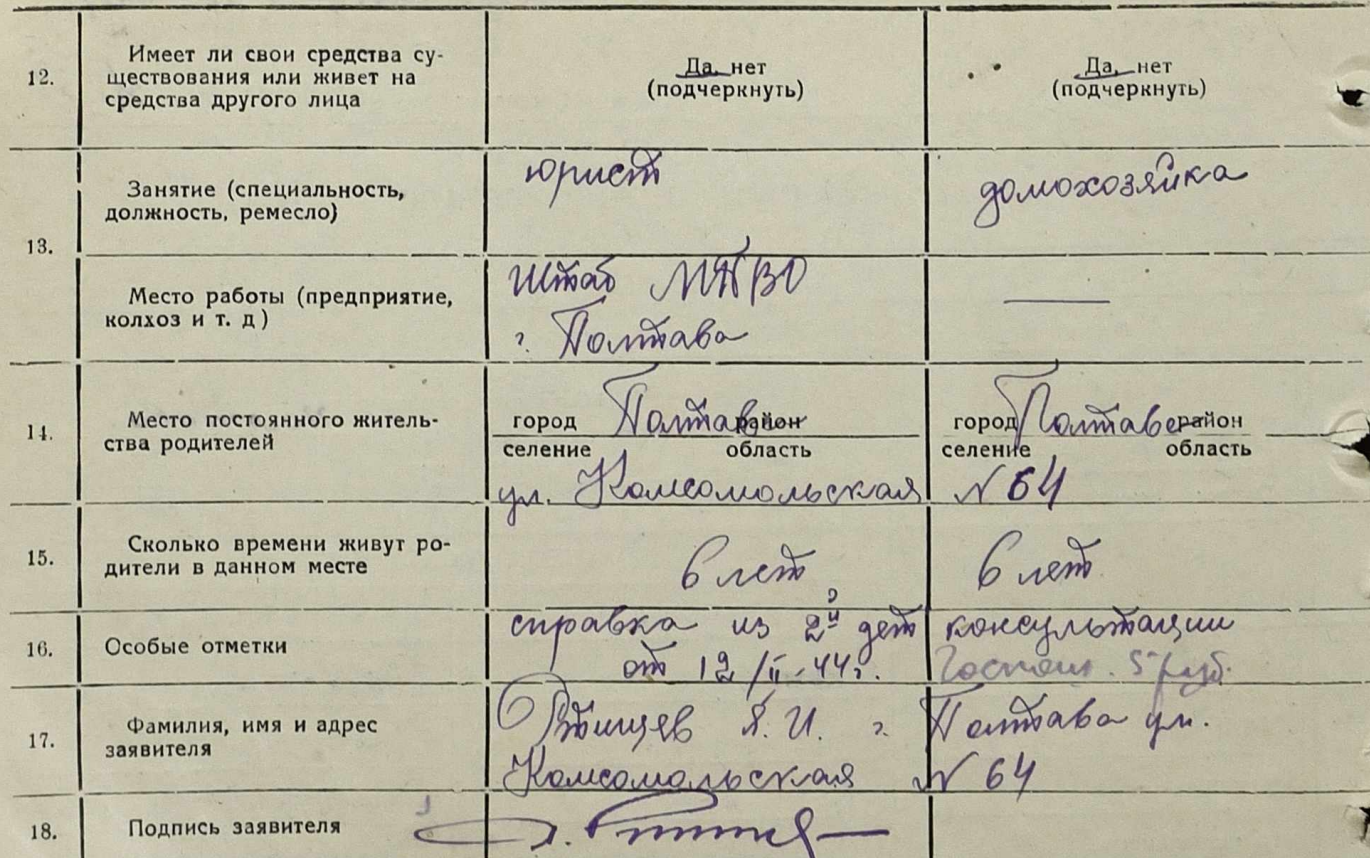 12. Имеет ли свои средства су-
ществования или живет на
средства другого лица
Да, нет
(подчеркнуть)
Да, нет
(подчеркнуть)
13.
Занятие (специальность,
должность, ремесло)
юрист
домохозяйка
Место работы (предприятие,
колхоз и т. д)
Штаб МПВО
г. Полтава
14. Место постоянного житель-
ства родителей
город Полтава район
селение область
ул. Комсомольская
город Полтава район
селение область
N 64
15. Сколько времени живут ро-
дители в данном месте
6 лет
6 лет
16. Особые отметки
справка из 2й дет консультации
от 12/II-44г. Госпошл. 5 руб.
17. Фамилия, имя и адрес
заявителя
Ртищев Я. И. г. Полтава ул.
Комсомольская N 64
18. Подпись заявителя